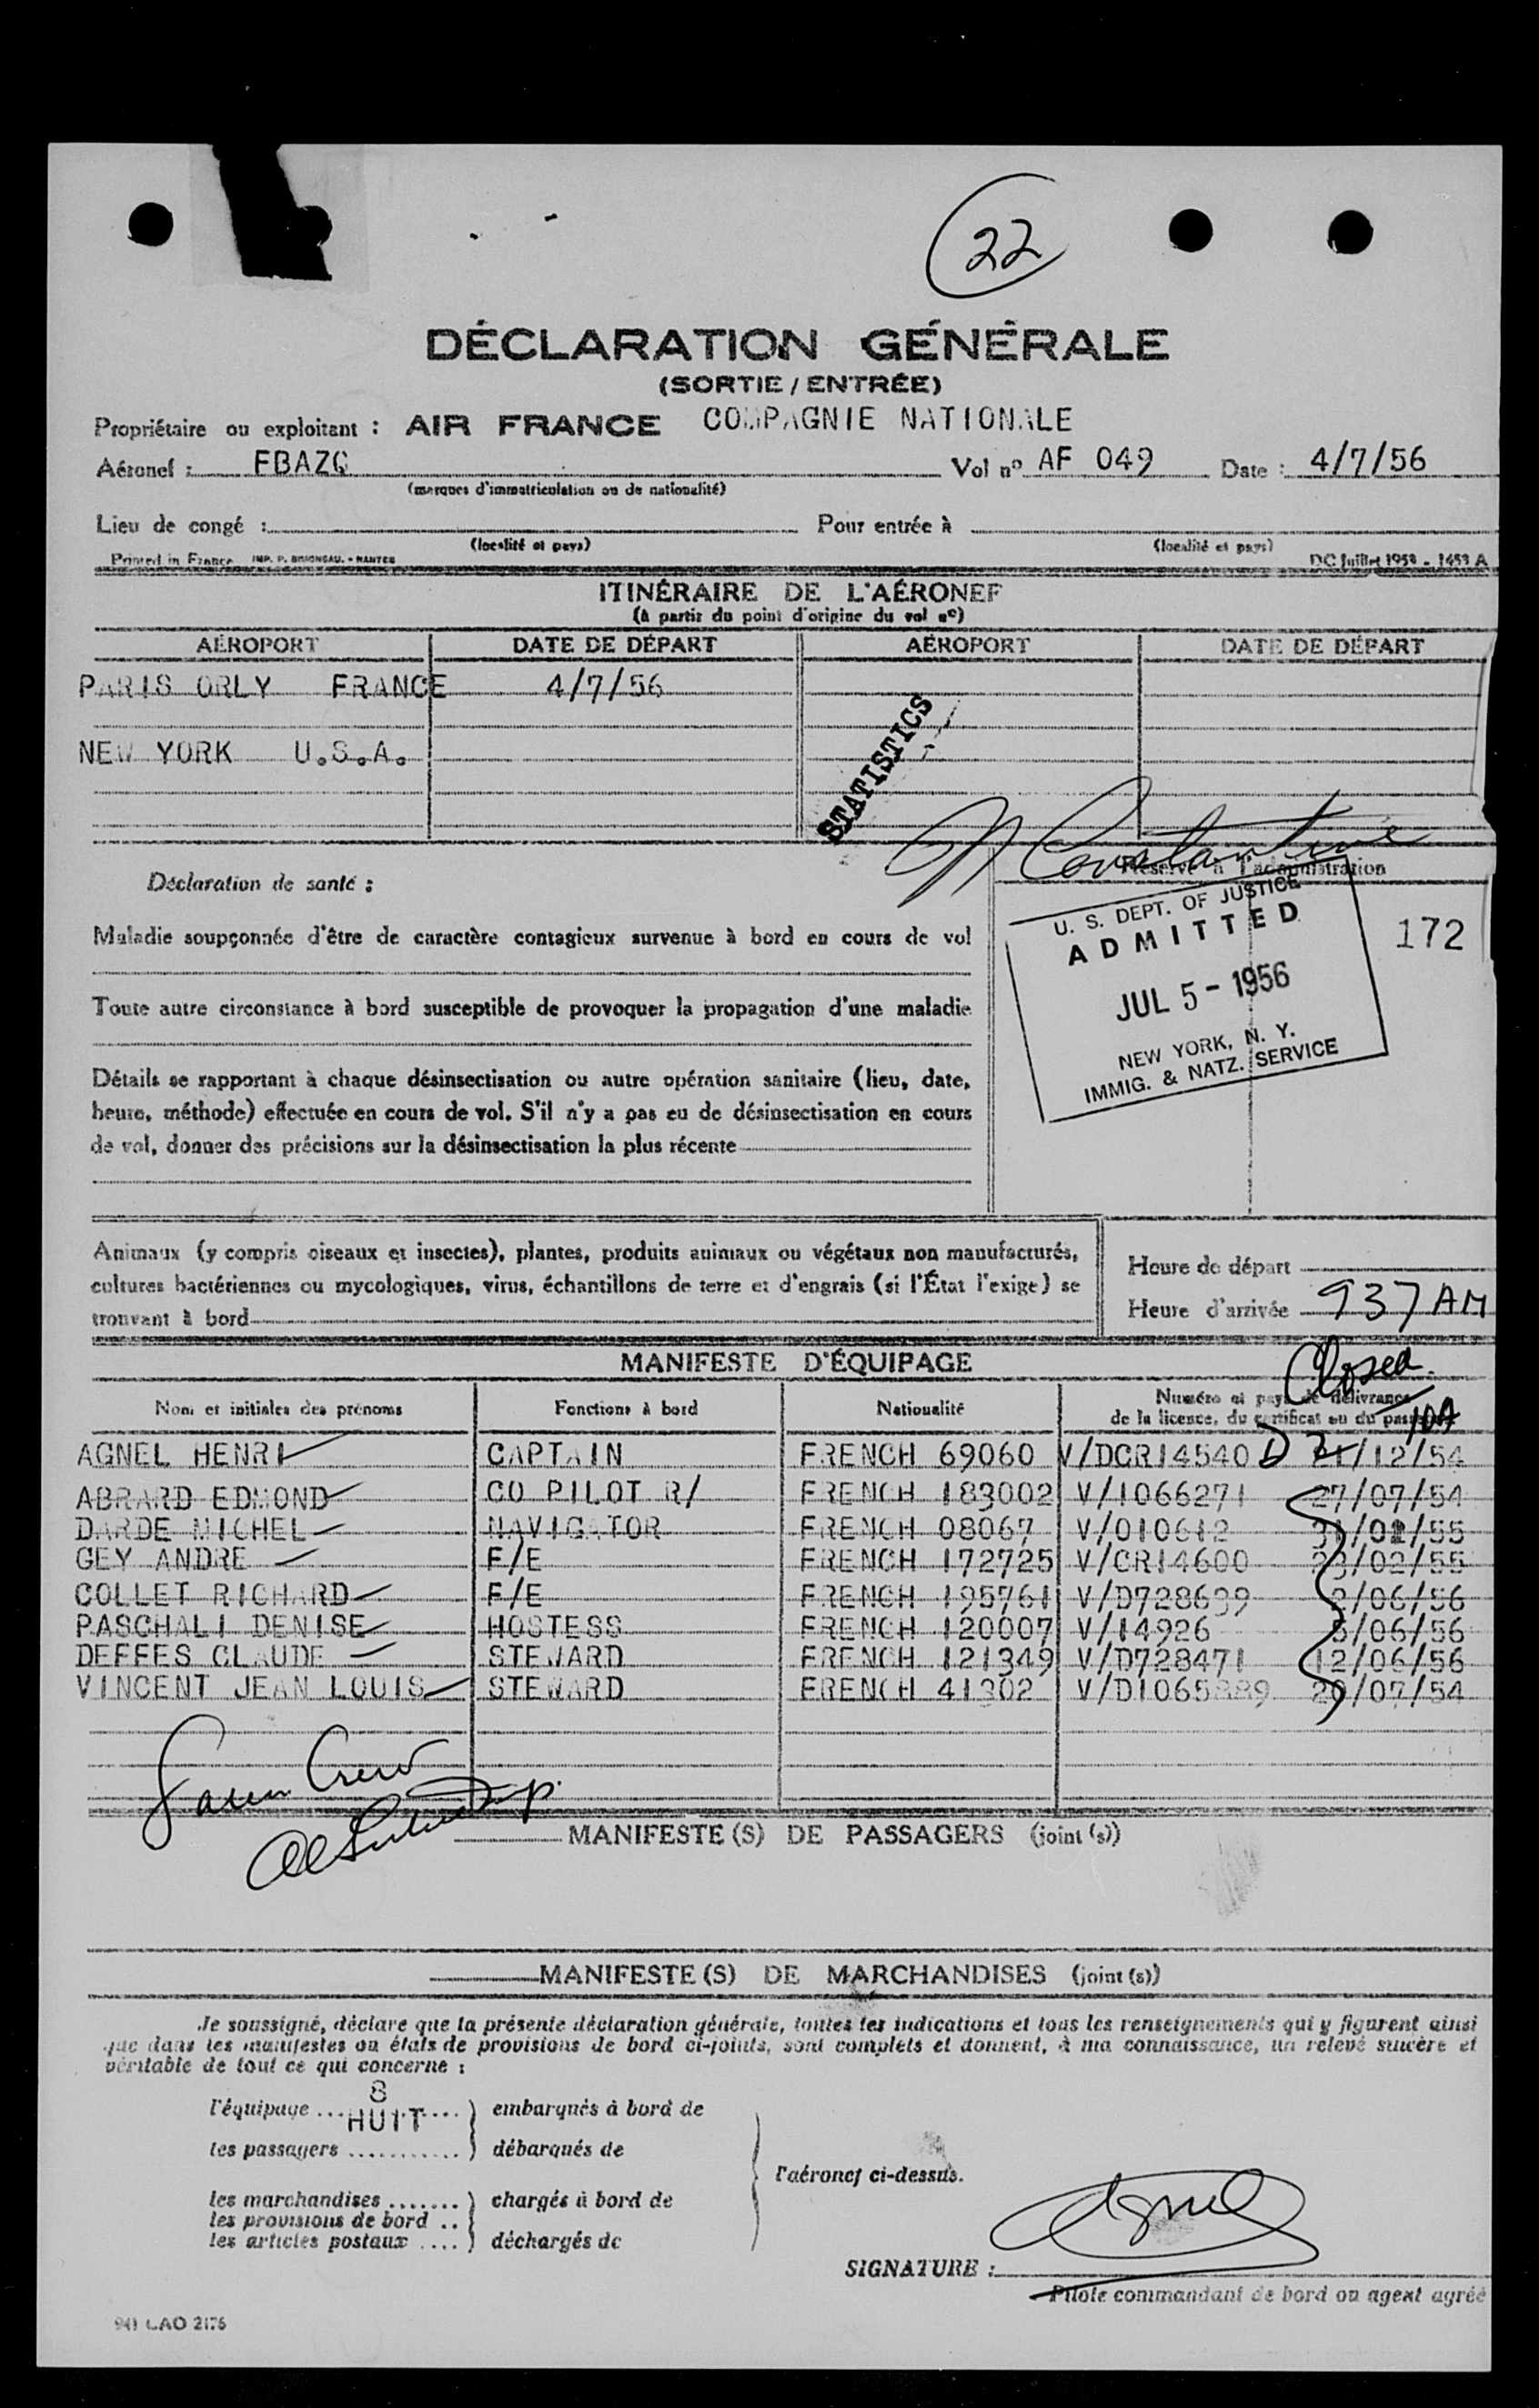 22
DÉCLARATION GÉNÉRALE
(SORTIE / ENTRÉE)
Propriétaire ou exploitant : AIR FRANCE COMPAGNIE NATIONALE
Aéronef : FBAZQ Vol nº AF 049 Date : 4/7/56
(marques d'immatriculation ou de nationalité)
Lieu de congé : Pour entrée à
(localité et pays) (localité et pays)
Printed in France IMP. P. - NANTES DC Juillet 1953 - 1453 A
ITINÉRAIRE DE L'AÉRONEF
(à partir du point d'origine du vol nº)
AÉROPORT DATE DE DÉPART AÉROPORT DATE DE DÉPART
PARIS ORLY FRANCE 4/7/56
NEW YORK U.S.A.
STATISTICS
N Constantine
Réservé à l'administration
Déclaration de santé :
Maladie soupçonnée d'être de caractère contagieux survenue à bord en cours de vol
Toute autre circonstance à bord susceptible de provoquer la propagation d'une maladie
Détails se rapportant à chaque désinsectisation ou autre opération sanitaire (lieu, date,
heure, méthode) effectuée en cours de vol. S'il n'y a pas eu de désinsectisation en cours
de vol, donner des précisions sur la désinsectisation la plus récente
U. S. DEPT. OF JUSTICE
ADMITTED
JUL 5 - 1956
NEW YORK, N. Y.
IMMIG. & NATZ. SERVICE
172
Animaux (y compris oiseaux et insectes), plantes, produits animaux ou végétaux non manufacturés,
cultures bactériennes ou mycologiques, virus, échantillons de terre et d'engrais (si l'État l'exige) se
trouvant à bord
Heure de départ
Heure d'arrivée 937 AM
MANIFESTE D'ÉQUIPAGE
Closed
Nom et initiales des prénoms Fonctions à bord Nationalité Numéro et pays de délivrance
de la licence, du certificat ou du passeport
AGNEL HENRI CAPTAIN FRENCH 69060 V/DCR14540 D 21/12/54
ABRARD EDMOND CO PILOT R/ FRENCH 183002 V/1066271 27/07/54
DARDE MICHEL NAVIGATOR FRENCH 08067 V/010612 31/01/55
GEY ANDRE F/E FRENCH 172725 V/CR14600 23/02/55
COLLET RICHARD F/E FRENCH 195761 V/D728639 2/06/56
PASCHALI DENISE HOSTESS FRENCH 120007 V/14926 5/06/56
DEFFES CLAUDE STEWARD FRENCH 121349 V/D728471 12/06/56
VINCENT JEAN LOUIS STEWARD FRENCH 41302 V/D1065889 20/07/54
Crew
MANIFESTE(S) DE PASSAGERS (joint(s))
MANIFESTE(S) DE MARCHANDISES (joint(s))
Je soussigné, déclare que la présente déclaration générale, toutes les indications et tous les renseignements qui y figurent ainsi
que dans les manifestes ou états de provisions de bord ci-joints, sont complets et donnent, à ma connaissance, un relevé sincère et
véritable de tout ce qui concerne :
8
l'équipage ... HUIT ... ) embarqués à bord de
les passagers ........... ) débarqués de
l'aéronef ci-dessus.
les marchandises ....... ) chargés à bord de
les provisions de bord ..
les articles postaux .... ) déchargés de
Agnel
SIGNATURE :
Pilote commandant de bord ou agent agréé
941 CAO 2176